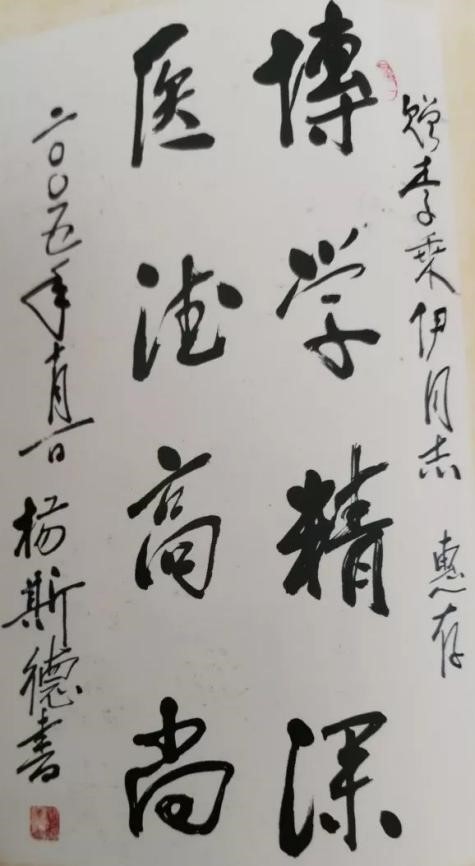 赠李乘伊同志 惠存
博学精深
医德高尚
二〇〇五年十月一日 杨斯德书